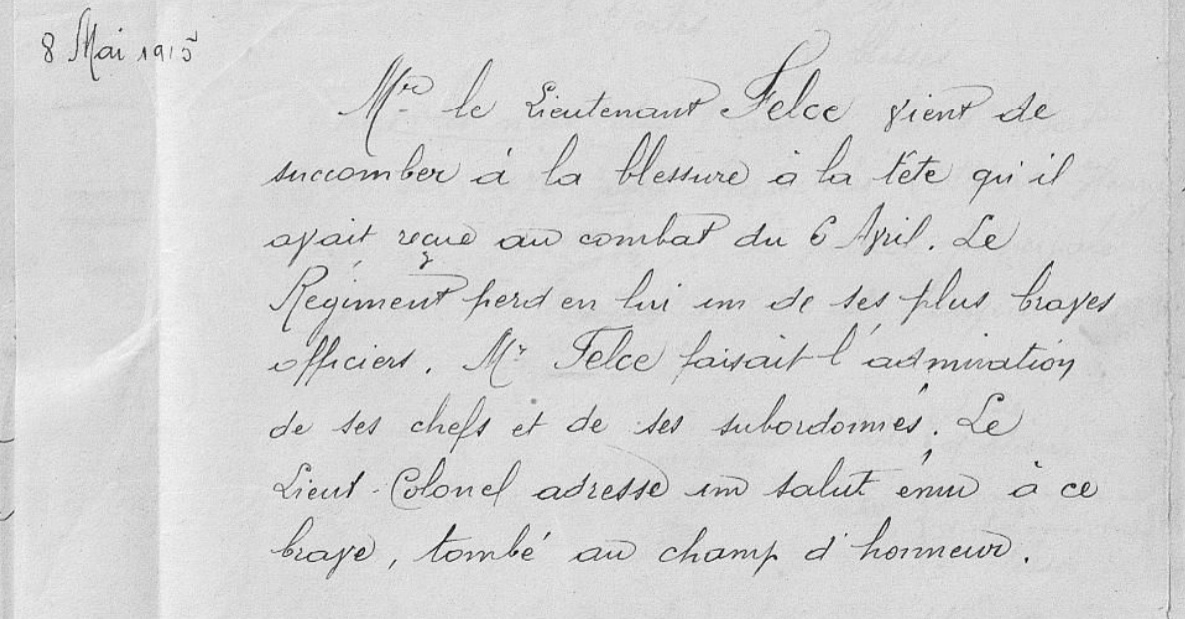 8 Mai 1915
Mr le Lieutenant Felce vient de
succomber à la blessure à la tête qu'il
avait reçue au combat du 6 Avril. Le
Régiment perd en lui un de ses plus braves
officiers. Mr Felce faisait l'admiration
de ses chefs et de ses subordonnés. Le
Lieut-Colonel adresse un salut ému à ce
brave, tombé au champ d'honneur.